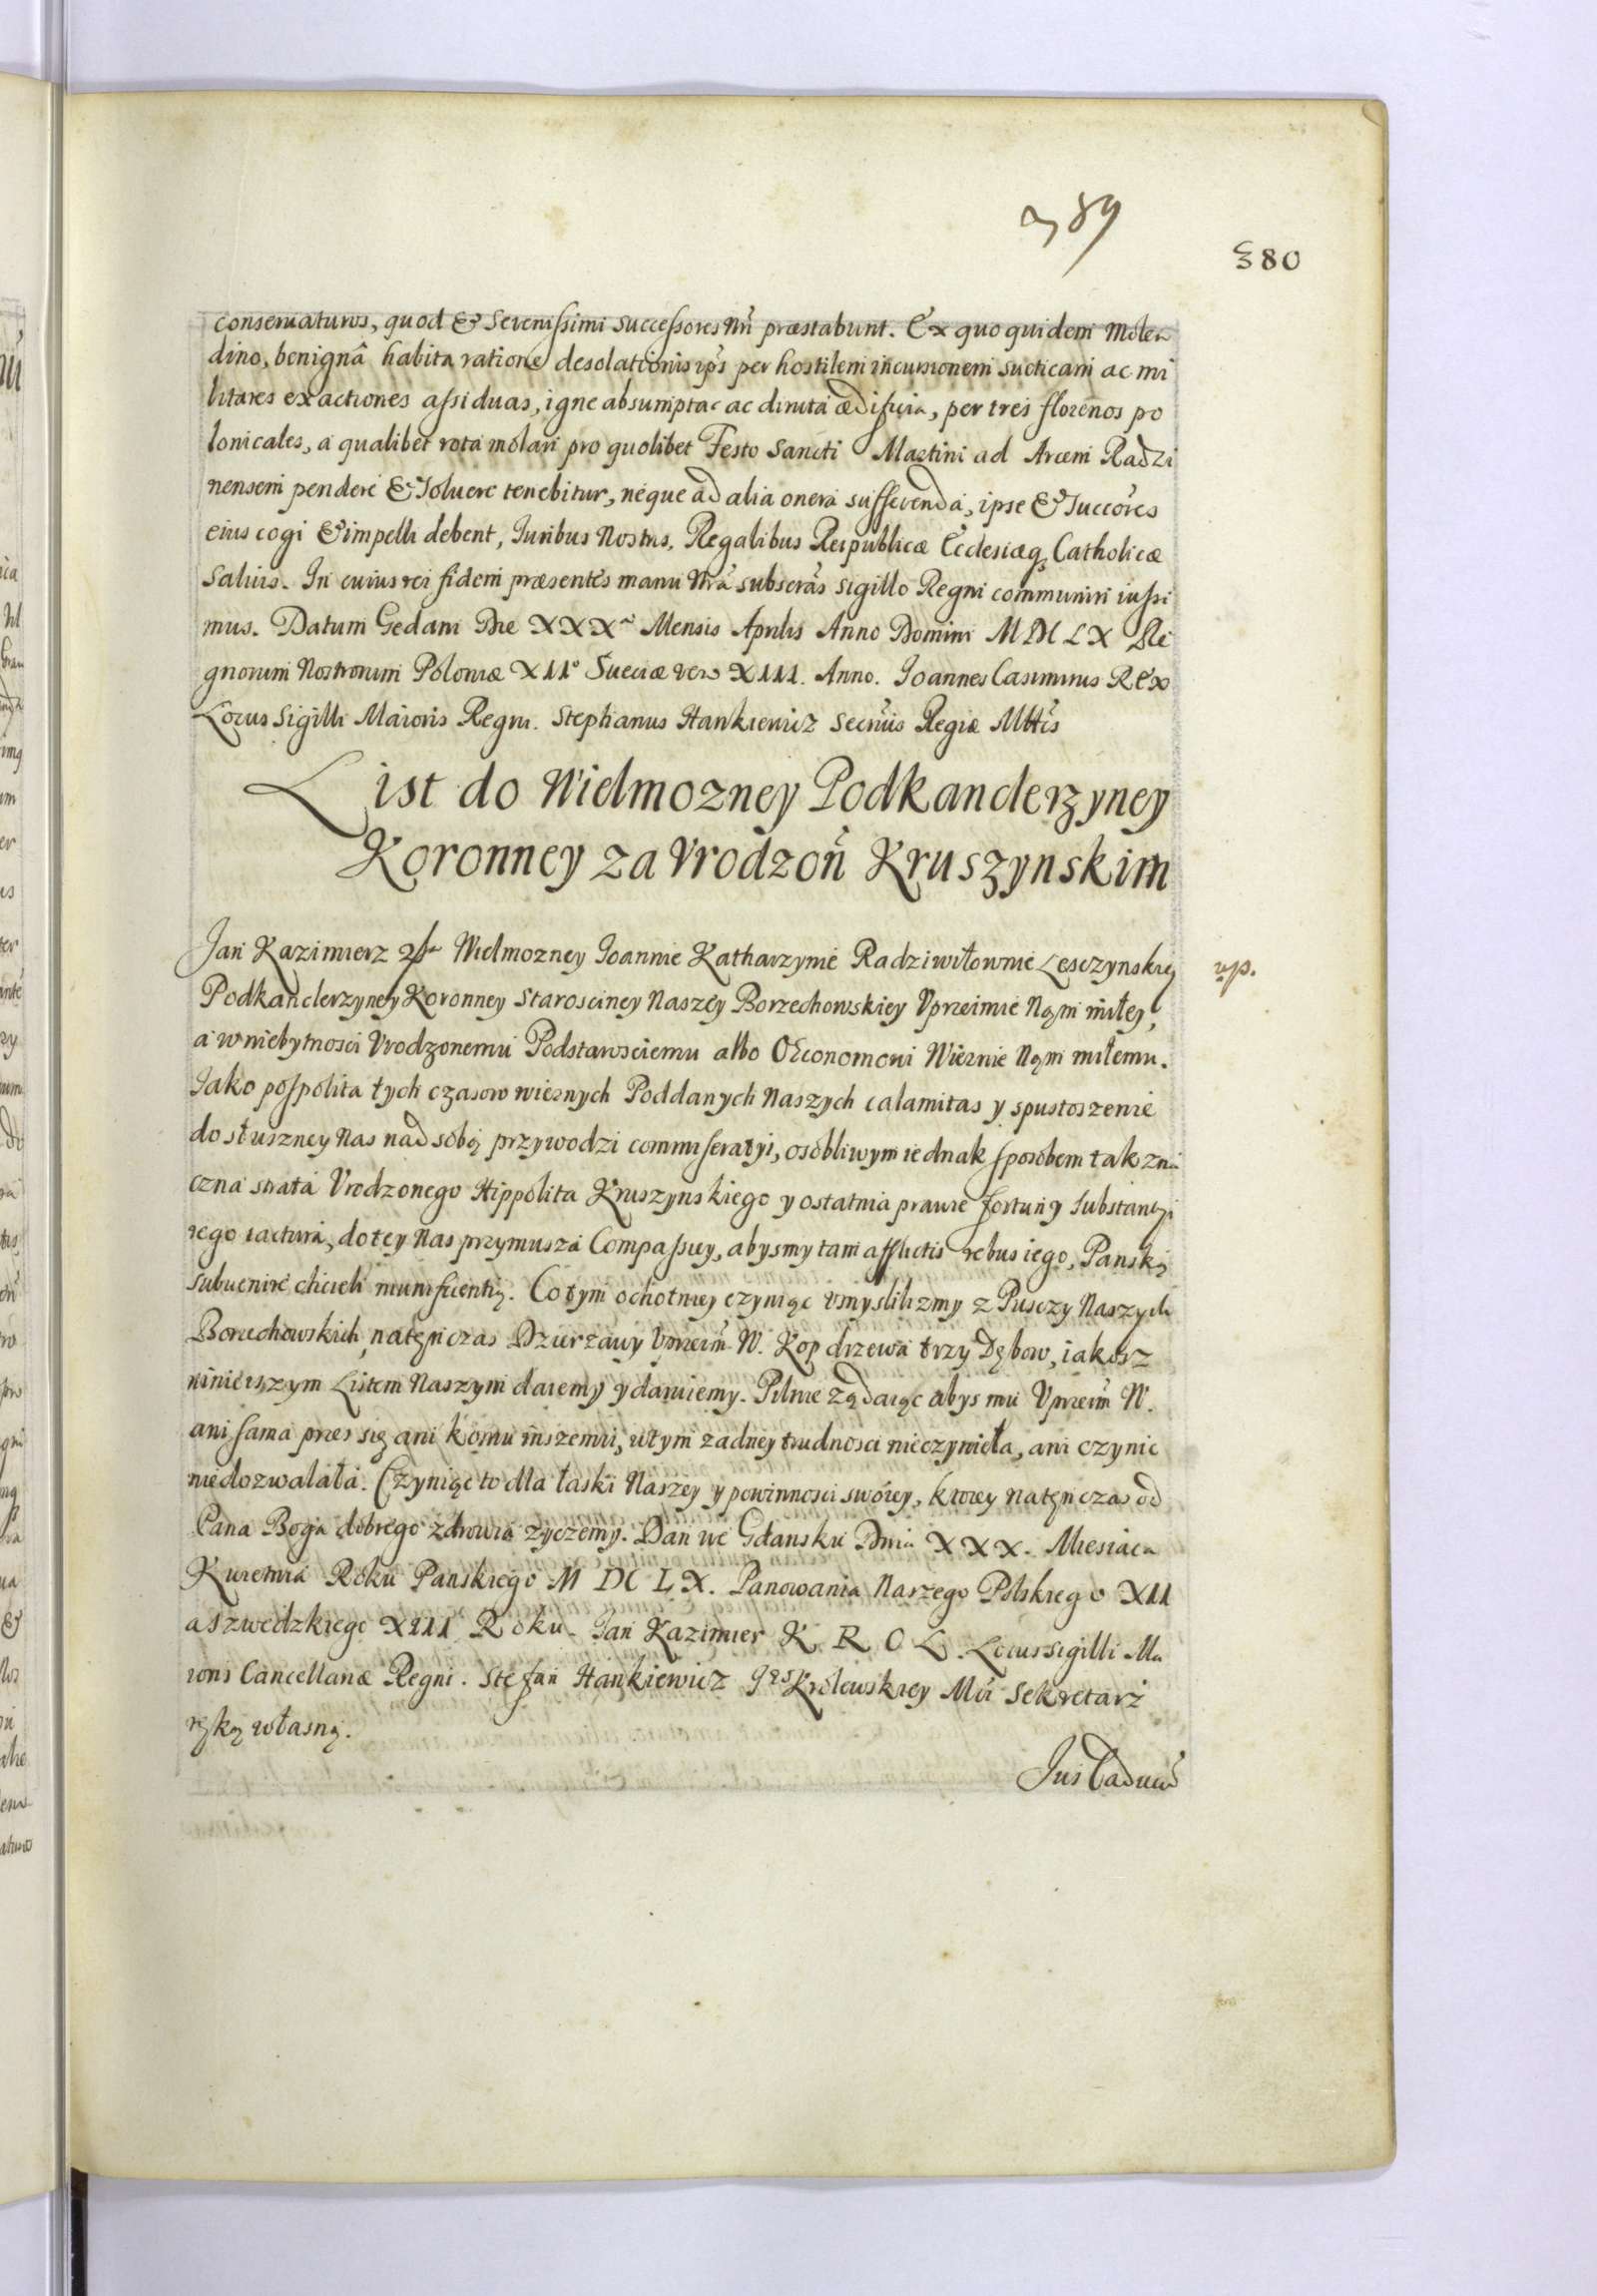 389
380
conservaturos, quod & Serenissimi Successores Nři præstabunt. Ex quo quidem Molen
dino, benignâ habita ratione desolationis ipš per hostilem incursionem sueticam ac mi
litares exactiones assiduas, igne absumpta ac diruta ædificia, per tres florenos po
lonicales, a qualibet rota molari pro quolibet Festo Sancti Martini ad Arcem Radzi
nensem pendere & Soluere tenebitur, neque ad alia onera sufferenda, ipse & Succores
eius cogi & impelli debent, Iuribus Nostris, Regalibus Reipublicæ Ecclesiæq Catholicæ
Saluis. In cuius rei fidem præsentes manu Nrã subscrãs Sigillo Regni communiri iussi
mus. Datum Gedani Die XXXa Mensis Aprilis Anno Domini MDCLX Re
gnorum Nostrorum Poloniæ XII° Sueciæ vero XIII. Anno. Joannes Casimirus REX
Locus Sigilli Maioris Regni. Stephanus Hankiewicz Secrius Regiæ Mttis
List do Wielmozney Podkanclerzyney
Koronney za Vrodzoñ Kruszynskim
Jan Kazimierz Wielmozney Joannie Katharzynie Radziwiłownie Lesczynskiey
up.
Podkanclerzyney Koronney Starosciney Naszey Borzechowskiey Vprzeimie Nąm miłey,
a w niebytnosci Vrodzonemu Podstarosciemu albo Œconomowi Wiernie Nąm miłemu.
Jako pospolita tych czasow wiernych Poddanych Naszych calamitas y spustoszenie
do słuszney Nas nad sobą przywodzi commiseratyi, osobliwym iednak sposobem tak zna
czna strata Vrodzonego Hippolita Kruszynskiego y ostatnia prawie fortuny Substantyi
iego iactura, do tey Nas przymusza Compassiey, abysmy tam afflictis rebus iego, Panską
subuenire chcieli munificentią. Co tym ochotniey czyniąc vmyslilizmy z Pusczy Naszych
Borzechowskich, natęnczas Dzierzawy Vprzeim W. Kop drzewa trzy Dębow, iakosz
ninieiszym Listem Naszym daiemy y daruiemy. Pilnie ządaiąc abys mu Vprzeim W.
ani sama przes się ani komu inszemu, w tym zadney trudnosci nieczyniła, ani czynic
niedozwalała. Czyniąc to dla łaski Naszey y powinnosci swoiey, ktorey natęnczas od
Pana Boga dobrego zdrowia zyczemy. Dan we Gdansku Dnia XXX. Miesiaca
Kwietnia Roku Panskiego MDCLX. Panowania Naszego Polskiego XII
a Szwedzkiego XIII Roku. Jan Kazimierz KROL. Locus Sigilli Ma
ioris Cancellariæ Regni. Stefan Hankiewicz Krolewskiey Mći Sekretarz
ręką własną.
Jus Caducũ